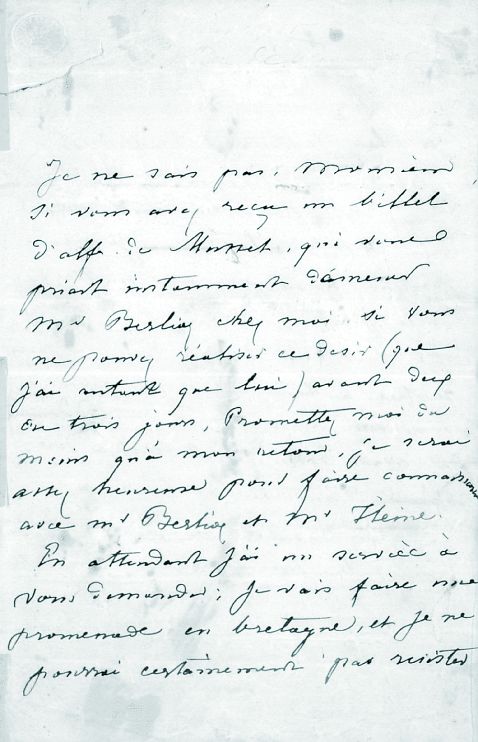 Je ne sais pas, Monsieur,
si vous avez reçu un billet
d'alf. de Musset, qui vous
priait instamment d'amener
Mr Berlioz chez moi. si vous
ne pouvez réaliser ce desir (que
j'ai autant que lui) avant deux
ou trois jours, Promettez moi du
moins qu'à mon retour, je serai
assez heureuse pour faire connaissance
avec mr Berlioz et mr Heine.
En attendant j'ai un service à
vous demander; Je vais faire une
promenade en bretagne, et je ne
pourrai certainement pas resister